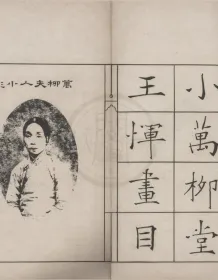 小萬柳堂
王惲畫目
萬柳夫人小